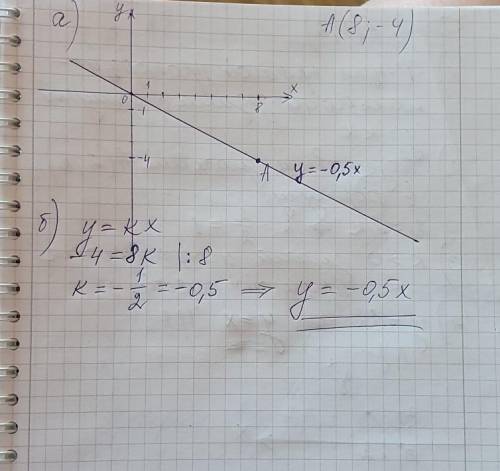 а) A(8;-4)
y
1 x
0 8
-1
-4
A y=-0,5x
б) y=kx
-4=8k |:8
k=-1/2=-0,5 ⇒ y=-0,5x